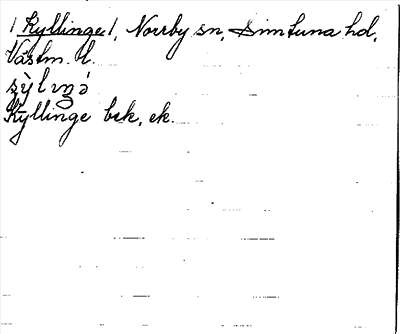 | Kyllinge |, Norrby sn, Simtuna hd,
Västm. l.
Kyllinge bek, ek.